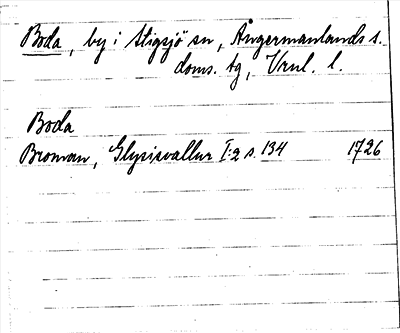 Boda, by i Stigsjö sn, Ångermanlands s.
doms. tg, Vrnl. l.
Boda
Broman, Glysisvallur I:2 s. 134 1726